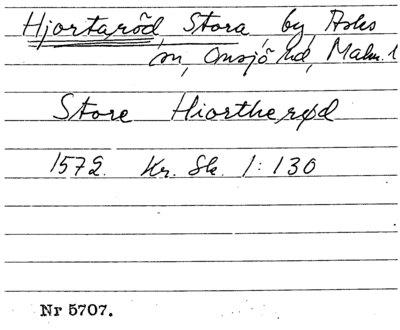 Hjortaröd, Stora, by, Asks
sn, Onsjö hd, Malm. l
Store Hiortherød
1572. Kr. Sk. 1:130
Nr 5707.